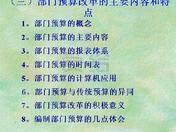 (三)部门预算改革的主要内容和特
点
1。部门预算的概念
2。部门预算的主要内容
3。部门预算的报表体系
4。部门预算的时间表
5。部门预算的计算机应用
6。部门预算与传统预算的异同
7。部门预算改革的积极意义
8。编制部门预算的几点体会